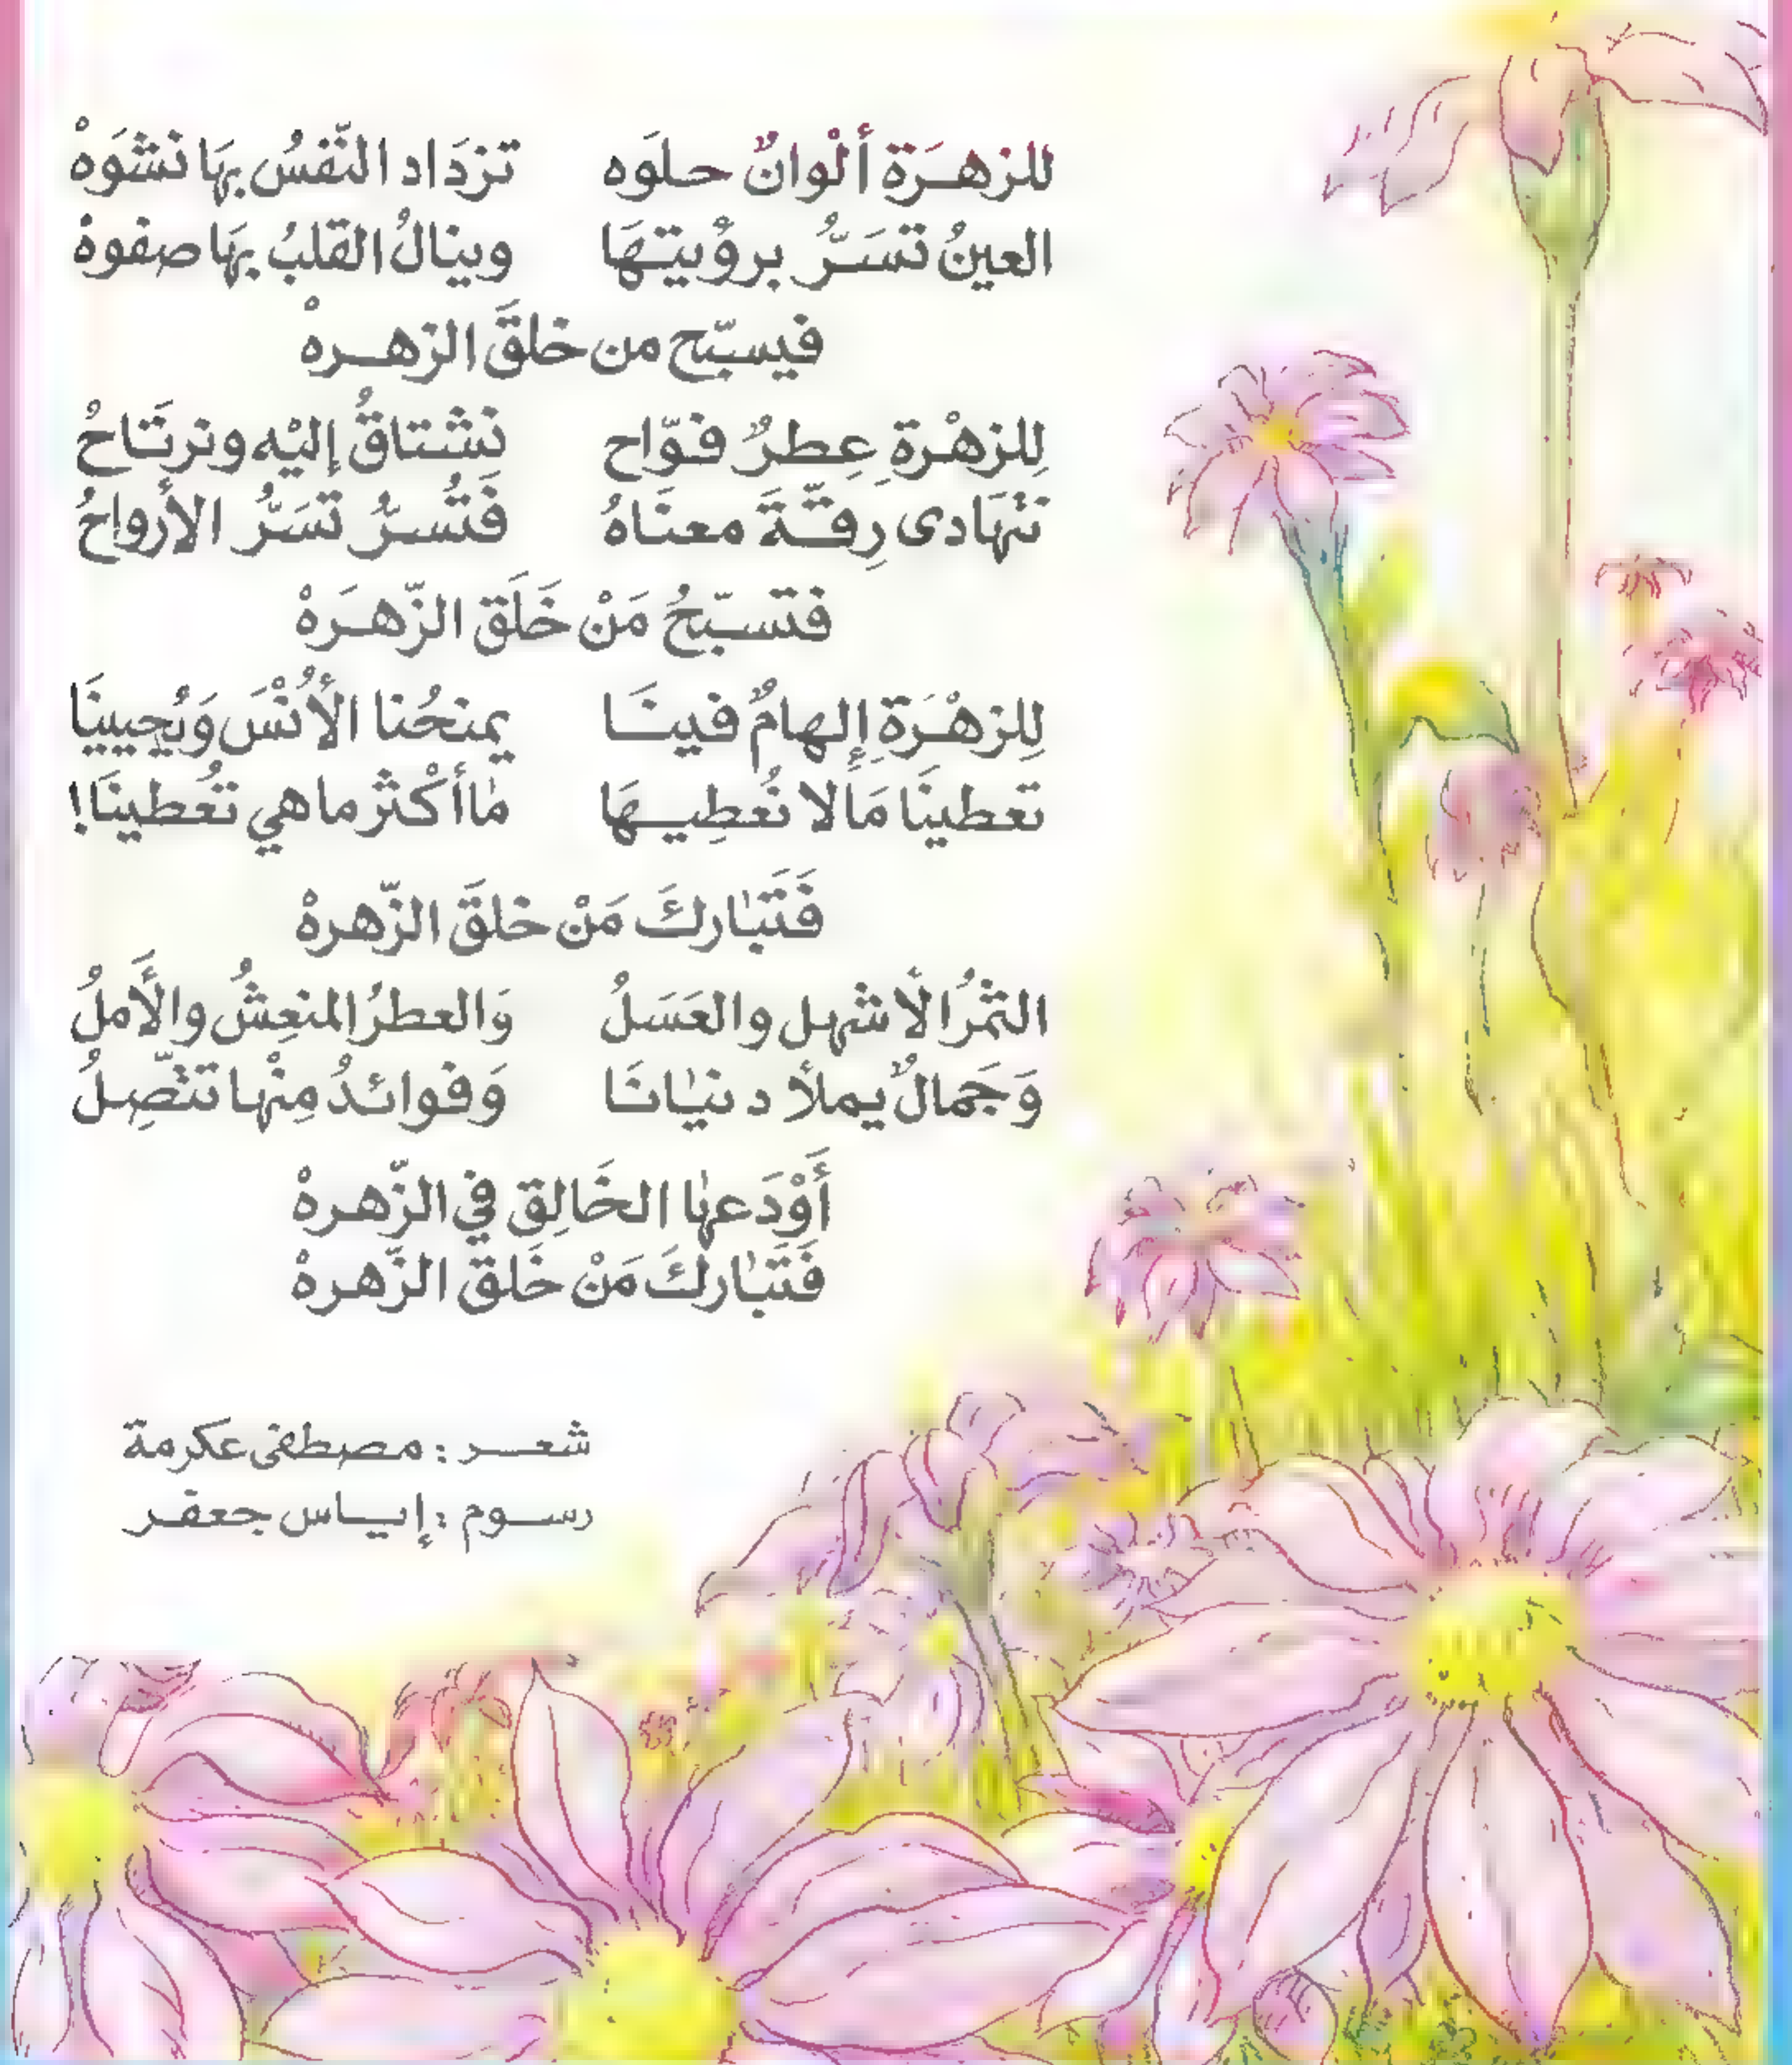 للزهــرَة ألْوانٌ حلوَه تزدَاد النّفسُ بهَا نشوَهْ
العينُ تسَرُّ برؤيتهَا وينالُ القلبُ بهَا صفوهْ
فيسبّح من خلقَ الزهرهْ
لِلزهْرةِ عِطرٌ فوّاح نشتاقُ إليْه ونرتَاحُ
تتهَادى رِقّةَ معنَاهُ فَتُسرُّ تسَرُّ الأرواحُ
فتسبّحُ مَنْ خَلَق الزّهرَهْ
لِلزهْرَةِ إلهامٌ فينَا يمنحُنا الأُنْسَ وَيُحيينَا
تعطينَا مَا لا نُعطِيهَا مَا أكْثر ما هي تُعطينَا!
فَتَبَارك مَنْ خلقَ الزّهرهْ
الثمْرُ الأشهى والعَسَلُ وَالعطرُ المنعِشُ والأَملُ
وَجَمالٌ يملأ دنيَانَا وَفوائدُ مِنْها تتّصِلُ
أَوْدَعهَا الخَالِق في الزّهرهْ
فَتَبَاركَ مَنْ خَلقَ الزّهرهْ
شعر : مصطفى عكرمة
رسوم : إياس جعفر